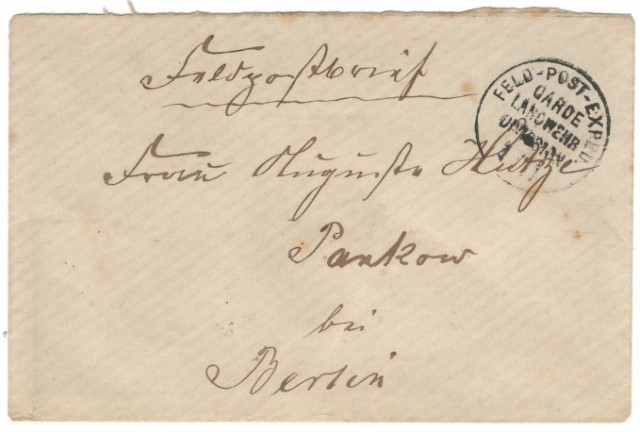 Feldpostbrief
FELD-POST-EXPED.
GARDE
LANDWEHR
DIVISION
Frau Auguste
Pankow
bei
Berlin